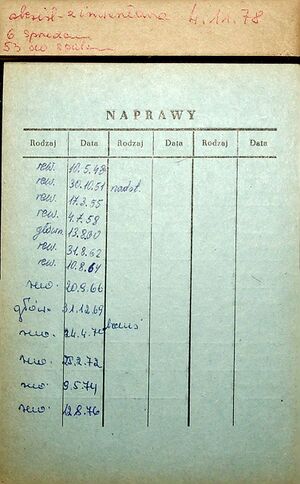 z inwentarza 4.11.78
6
53 do
NAPRAWY
Rodzaj Data Rodzaj Data Rodzaj Data
rew. 10.5.49
rew. 30.10.51
rew. 17.2.55
rew. 4.7.58
główn.
rew. 31.8.62
rew. 10.8.64
rew. 20.9.66
główn. 31.12.69
rew. 24.4.71
rew. 25.2.72
rew. 9.5.74
rew. 12.8.76